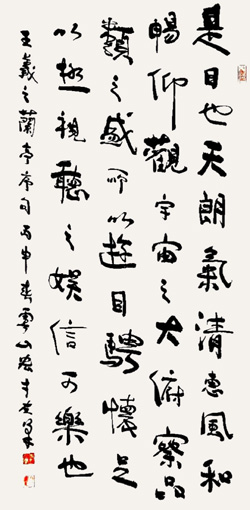 是日也天朗氣清惠風和
暢仰觀宇宙之大俯察品
類之盛所以遊目騁懷足
以極視聽之娛信可樂也
王羲之蘭亭序句丙申春雲山